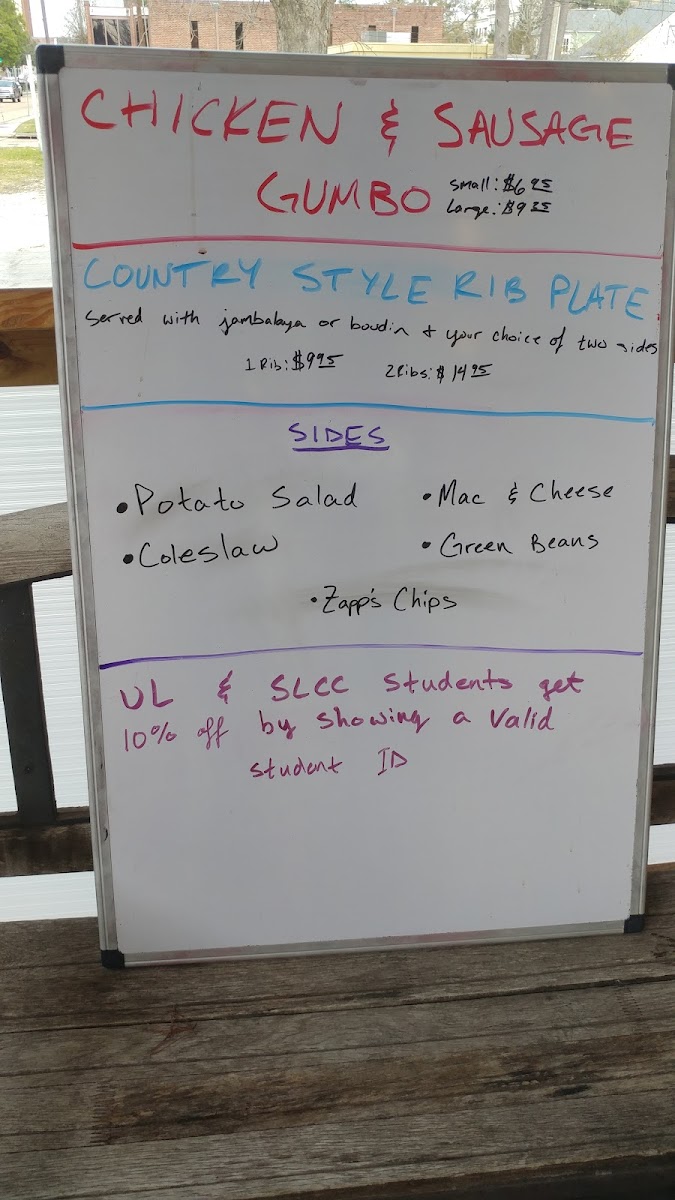 CHICKEN & SAUSAGE
GUMBO
Small: $6.95
Large: $9.95
COUNTRY STYLE RIB PLATE
Served with jambalaya or boudin & your choice of two sides
1 Rib: $9.95 2 Ribs: $14.95
SIDES
• Potato Salad • Mac & Cheese
• Coleslaw • Green Beans
• Zapp's Chips
UL & SLCC students get
10% off by showing a valid
student ID